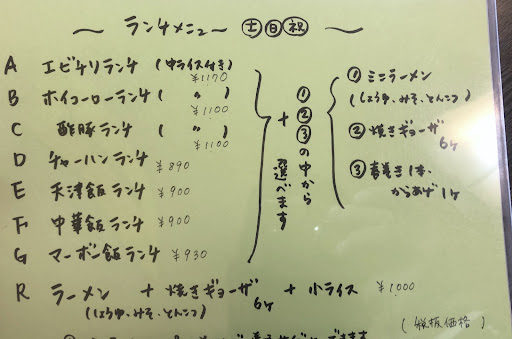 〜 ランチメニュー 土 日 祝 〜
A エビチリランチ (中ライス付き) ¥1170
B ホイコーローランチ ( 〃 ) ¥1100
C 酢豚ランチ ( 〃 ) ¥1100
D チャーハンランチ ¥890
E 天津飯ランチ ¥900
F 中華飯ランチ ¥900
G マーボー飯ランチ ¥930
+ ①②③の中から
選べます
① ミニラーメン
(しょうゆ、みそ、とんこつ)
② 焼きギョーザ 6ヶ
③ 春巻き1本、
からあげ1ヶ
R ラーメン + 焼きギョーザ 6ヶ + 小ライス ¥1,000
(しょうゆ、みそ、とんこつ)
(税抜価格)